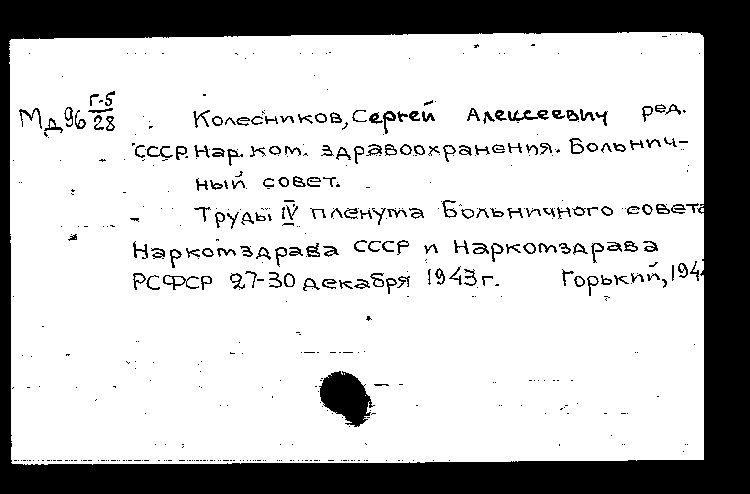 Мд96 Г-5/28
Колесников, Сергей Алексеевич ред.
СССР. Нар. ком. здравоохранения. Больнич-
ный совет.
Труды IV пленума Больничного совета
Наркомздрава СССР и Наркомздрава
РСФСР 27-30 декабря 1943 г. Горький,